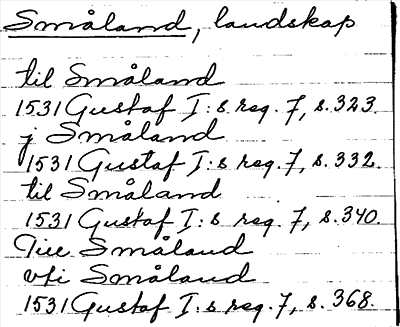 Småland, landskap
til Småland
1531 Gustaf I:s reg. 7, s. 323.
j Småland
1531 Gustaf I:s reg. 7, s. 332.
til Småland
1531 Gustaf I:s reg. 7, s. 340.
Till Småland
vti Småland
1531 Gustaf I:s reg. 7, s. 368.